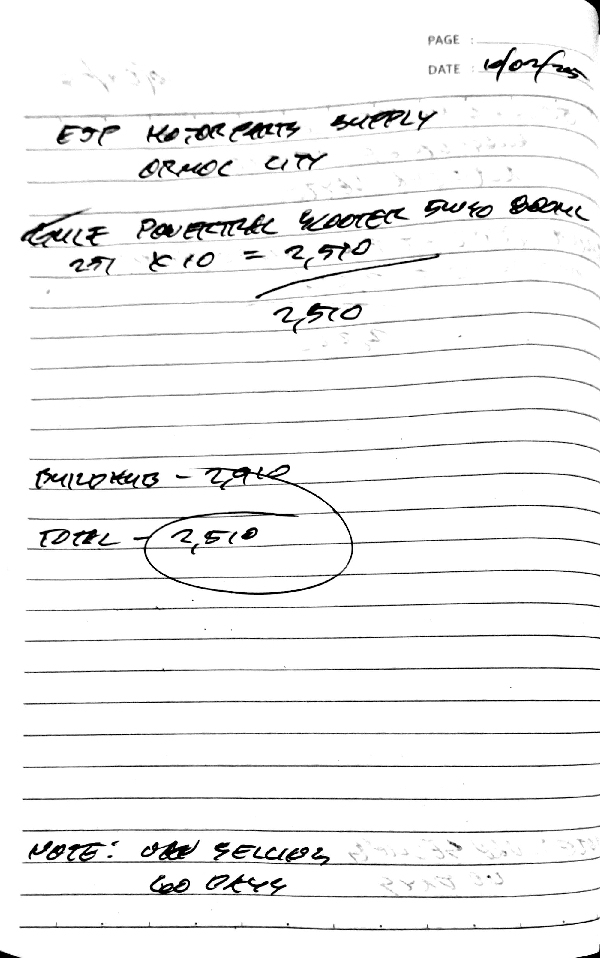 PAGE :
DATE : 10/02/205
EJP MOTORPARTS SUPPLY
ORMOC CITY
POWERTRAC SCOOTER 5W40 800ML
251 X 10 = 2,510
2,510
BUILDHUB - 2,910
TOTAL - 2,510
NOTE: VAN SELLING
60 DAYS